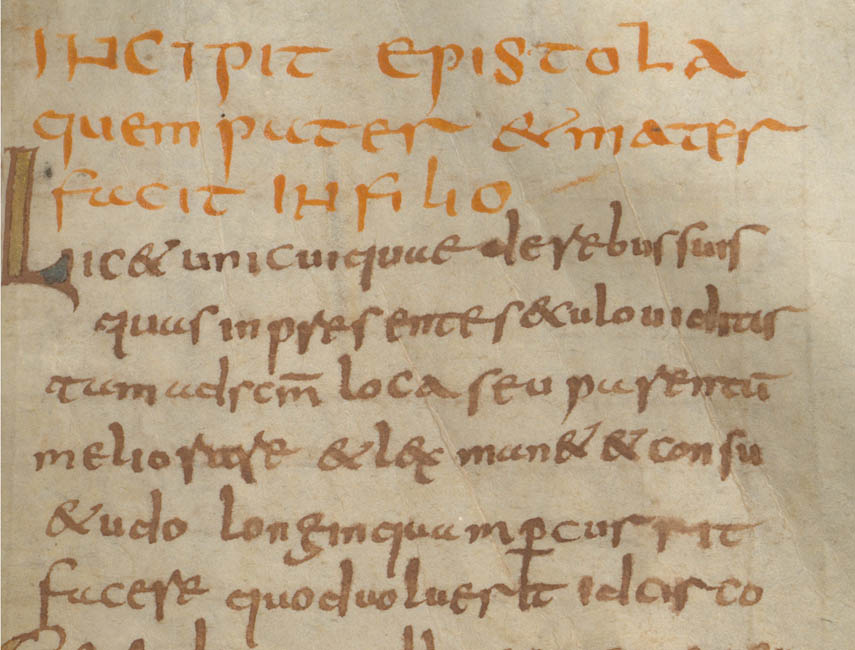 INCIPIT EPISTOLA
quem pater & mater
facit IN filio
Lic& unicuiquae de rebus suis
quas in presente s&ulo
tam ad scm̄ loca seu parentū
meliorare & lex man& & consu
&udo longinquam ꝑcurrit
facere quod uoluerit idcirco